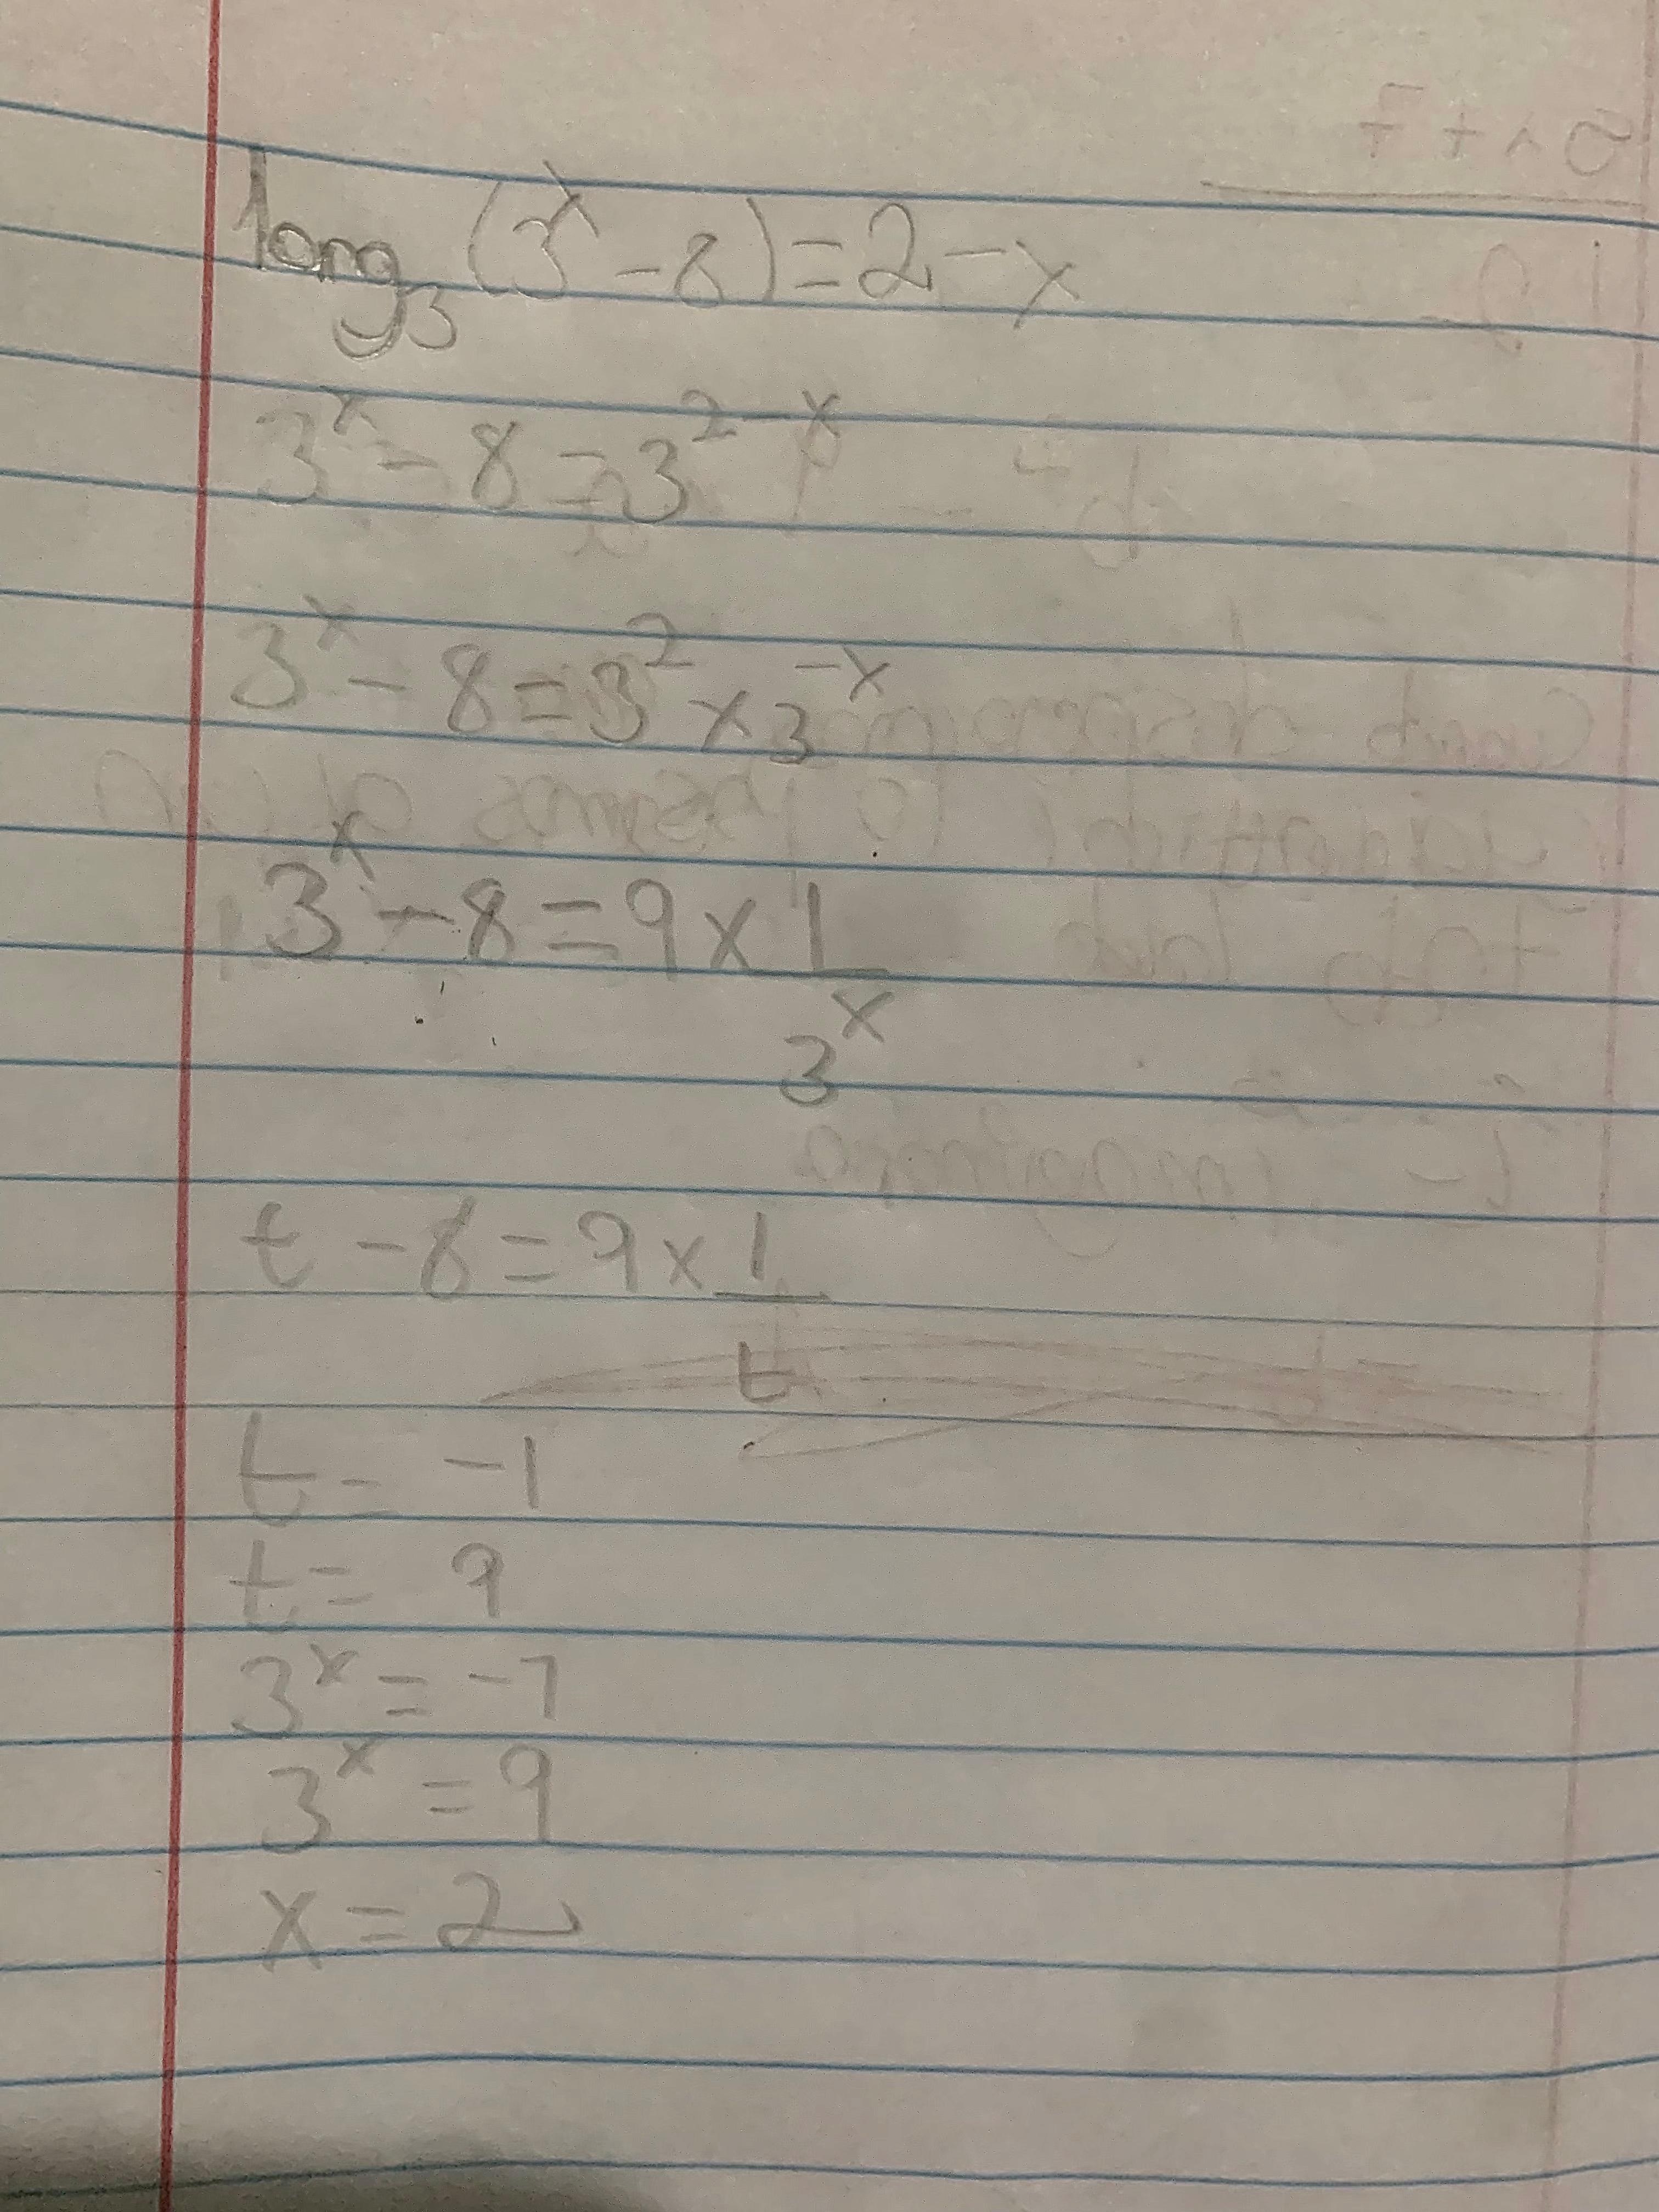 log₃(3ˣ - 8) = 2 - x
3ˣ - 8 = 3²⁻ˣ
3ˣ - 8 = 3² × 3⁻ˣ
3ˣ - 8 = 9 × 1/3ˣ
t - 8 = 9 × 1/t
t = -1
t = 9
3ˣ = -1
3ˣ = 9
x = 2